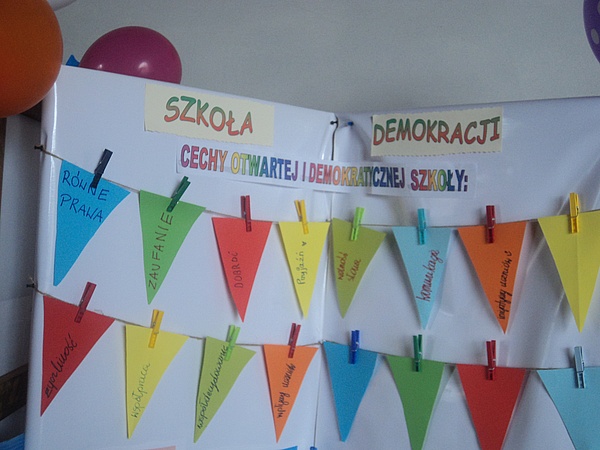 SZKOŁA
DEMOKRACJI
CECHY OTWARTEJ I DEMOKRATYCZNEJ SZKOŁY:
RÓWNE
PRAWA
ZAUFANIE
DOBROĆ
Przyjaźń
komunikacja
życzliwość
współpraca
współdecydowanie